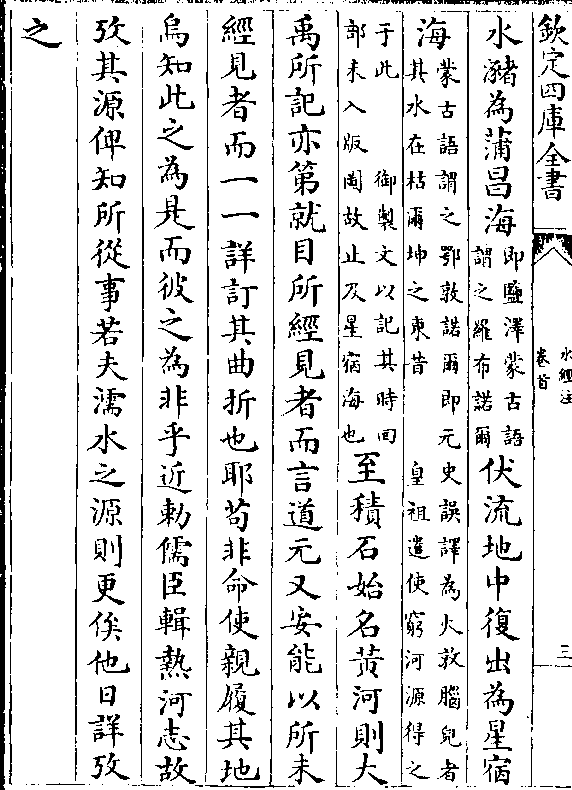 欽定四庫全書
水經注
卷首
三
水瀦為蒲昌海
即鹽澤蒙古語
謂之羅布諾爾
伏流地中復出為星宿
海
蒙古語謂之鄂敦諾爾即元史誤譯為火敦腦兒者
其水在枯爾坤之東昔 皇祖遣使窮河源得之
于此 御製文以記其時回
部未入版圖故止及星宿海也
至積石始名黄河則大
禹所記亦第就目所經見者而言道元又安能以所未
經見者而一一詳訂其曲折也耶苟非命使親履其地
烏知此之為是而彼之為非乎近勅儒臣輯熱河志故
攷其源俾知所從事若夫濡水之源則更俟他日詳攷
之